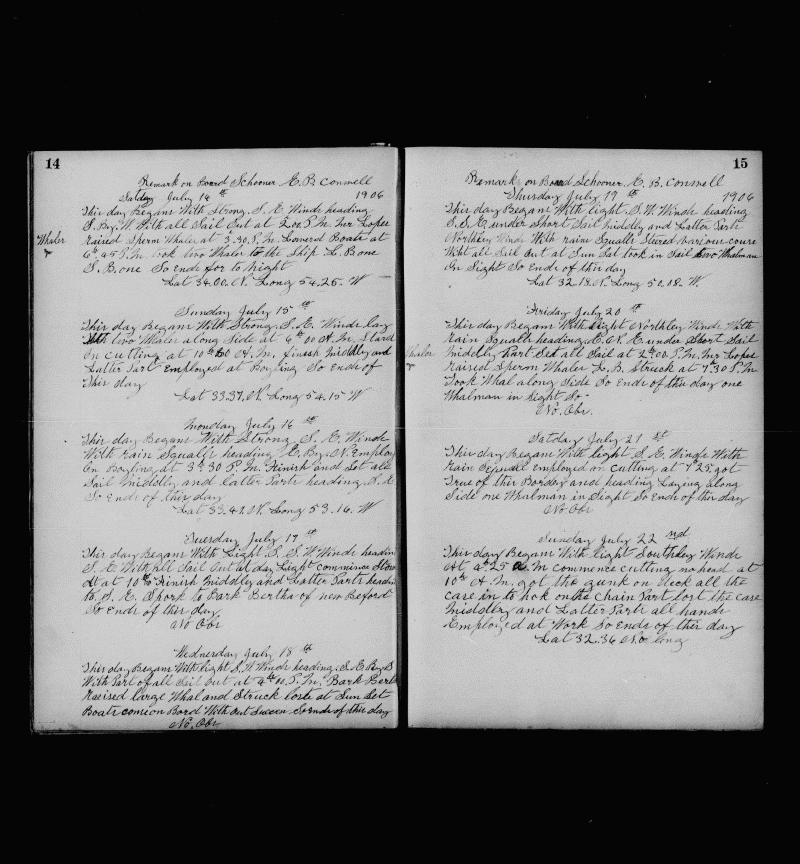 14
Remark on Board Schooner E. B. Conwell
Satday July 14th 1906
This day Begans With Strong. S. E. Winds heading
S. By. W. With all Sail Out at 2.00 P.M. Mr Lopes
Whales
raised Sperm Whales at 3.30. P.M. Lowerd Boats at
6h 45 P.M. took two Whales to the Ship L. B. one
S. B. one So ends for to Night
Lat 34.00. N. Long 54.25. W
Sunday July 15th
This day Began With Strong. S. E. Winds lay
With two Whales along Side at 6h 00 A.M. Stard
On cutting at 10h 00 A.M. finish Middley and
Latter Part Employed at Boyling So Ends of
This day
Lat 33.37. N. Long 54.15 W
Monday July 16th
This day Began With Strong S. E. Winds
With rain Squalls heading E. By. N. Employ
On Boyling at 3h 30 P.M. Finish and Set all
Sail Middley and Latter Parts heading. S. E.
So Ends of this day
Lat 33.41. N. Long 53.16. W
Tuesday July 17th
This day Began With Light. S. S. W. Winds heading
S. E. With all Sail Out at day Light commince Stow
at 10h Finish Middley and Latter Parts heading
to. S. E. Spork to Bark Bertha of new Beford
So Ends of this day
No Obs
Wednesday July 18th
This day Began With light S. W. Winds heading. S. E. By. S
With Part of all Sail Out at 4h 00. P.M. Bark Berth
Raised large Whal and Struck lost at Sun Set
Boats come on Bord With Out Success So ends of this day
No. Obs
15
Remark on Board Schooner. E. B. Conwell
Thursday July 19th 1906
This day Began With light. S. W. Winds heading
S. S. E. under Short Sail Middley and Latter Parts
Northley Winds With rain Squalls Stered Various course
With all Sail Out at Sun Sat took in Sail two Whalman
On Sight So Ends of this day
Lat 32.18. N. Long 50.18. W.
Friday July 20th
This day Began With Light Northley Winds With
rain Squalls heading. E. N. E. under Short Sail
Whales
Middley Part Set all Sail at 2h 00 P.M. Mr Lopes
Raised Sperm Whales L. B. Struck at 7.30 P.M.
Took Whal along Side So Ends of this day one
Whalman in Sight So
No. Obs.
Satday July 21st
This day Began With light S. E. Winds With
rain Squall Employed on cutting at
of this Borday and heading Laying along
Side one Whalman in Sight So Ends of this day
No Obs
Sunday July 22nd
This day Began With light Southley Winds
At 4h 25 A.M Commence cutting no head at
10h A.M. got the Junk on deck all the
case in to hok on the Chain Part lost the case
Middley and Latter Parts all hands
Employed at Work So Ends of this day
Lat 32.36 No Long